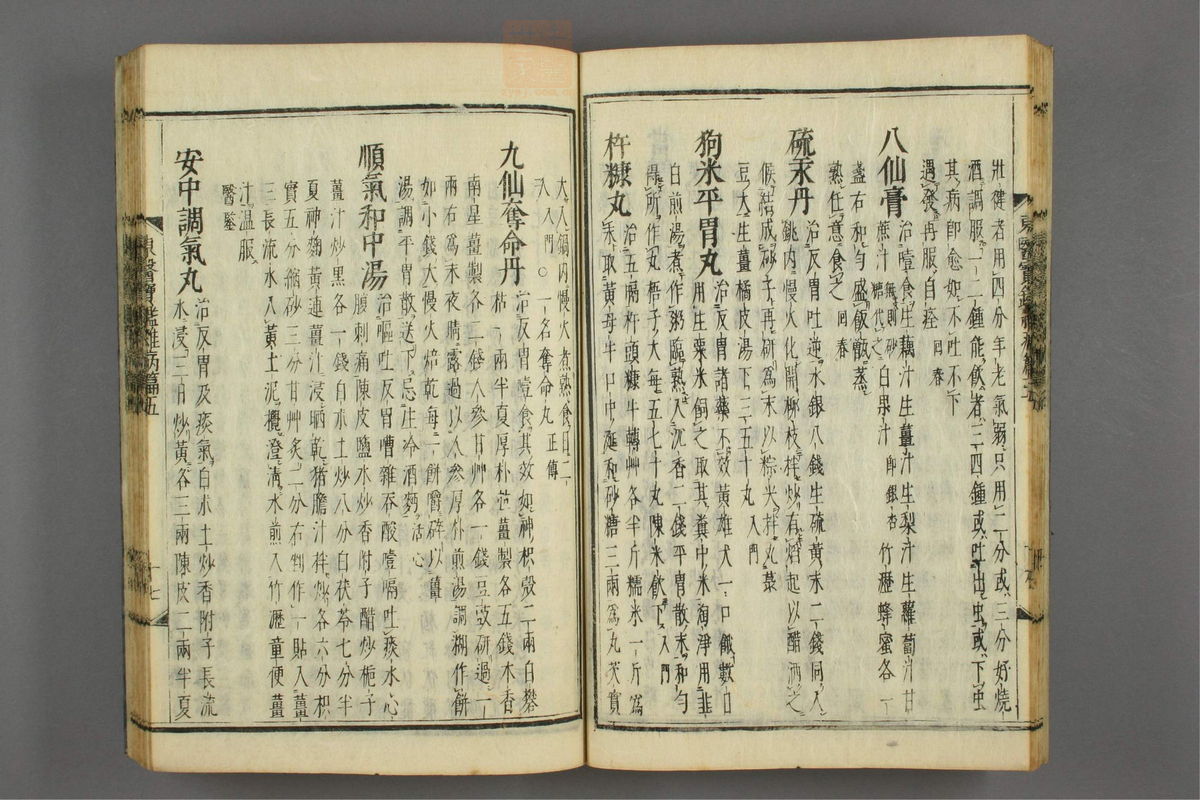 壯健者用四分年老氣弱只用二分或三分好燒
酒調服一二鍾能飮者三四鍾或吐出虫或下虫
其病卽愈如不吐不下
遇發再服自痊 回春
八仙膏 治噎食生藕汁生薑汁生梨汁生蘿蔔汁甘
蔗汁 無則砂糖代之 白果汁 卽銀杏 竹瀝蜂蜜各一
盞右和勻盛飯甑蒸
熟任意食之 回春
硫汞丹 治反胃吐逆水銀八錢生硫黃末二錢同入
銚內慢火化開柳枝拌炒有焰起以醋洒之
候結成砂子再硏爲末以粽米拌丸菉
豆大生薑橘皮湯下三五十丸 入門
狗米平胃丸 治反胃諸藥不效黃雄犬一口餓數日
用生粟米飼之取其糞中米淘淨用韭
白煎湯煮作粥臨熟入沉香二錢平胃散末和勻
得所作丸梧子大每五七十丸陳米飮下 入門
杵糠丸 治五膈杵頭糠牛轉艸各半斤糯米一斤爲
末取黃母牛口中涎和砂糖三兩爲丸芡實
大入鍋內慢火煮熟食日二
入入門 ○ 一名奪命丸 正傳
九仙奪命丹 治反胃噎食其效如神枳殼二兩白礬
枯一兩半夏厚朴並薑製各五錢木香
南星薑製各二錢人參甘艸各一錢豆豉硏過一
兩右爲末夜晴露過以人參厚朴煎湯調糊作餠
如小錢大慢火焙乾每一餠嚼碎以薑
湯調平胃散送下忌生冷酒麪 活心
順氣和中湯 治嘔吐反胃嘈雜吞酸噎膈吐痰水心
腹刺痛陳皮鹽水炒香附子醋炒梔子
薑汁炒黑各一錢白朮土炒八分白茯苓七分半
夏神麴黃連薑汁浸晒乾猪膽汁拌炒各六分枳
實五分縮砂三分甘艸炙二分右剉作一貼入薑
三長流水入黃土泥攪澄淸水煎入竹瀝童便薑
汁溫服
醫鑑
安中調氣丸 治反胃及痰氣白朮土炒香附子長流
水浸三日炒黃各三兩陳皮二兩半夏
東醫寶鑑雜病篇五
十七